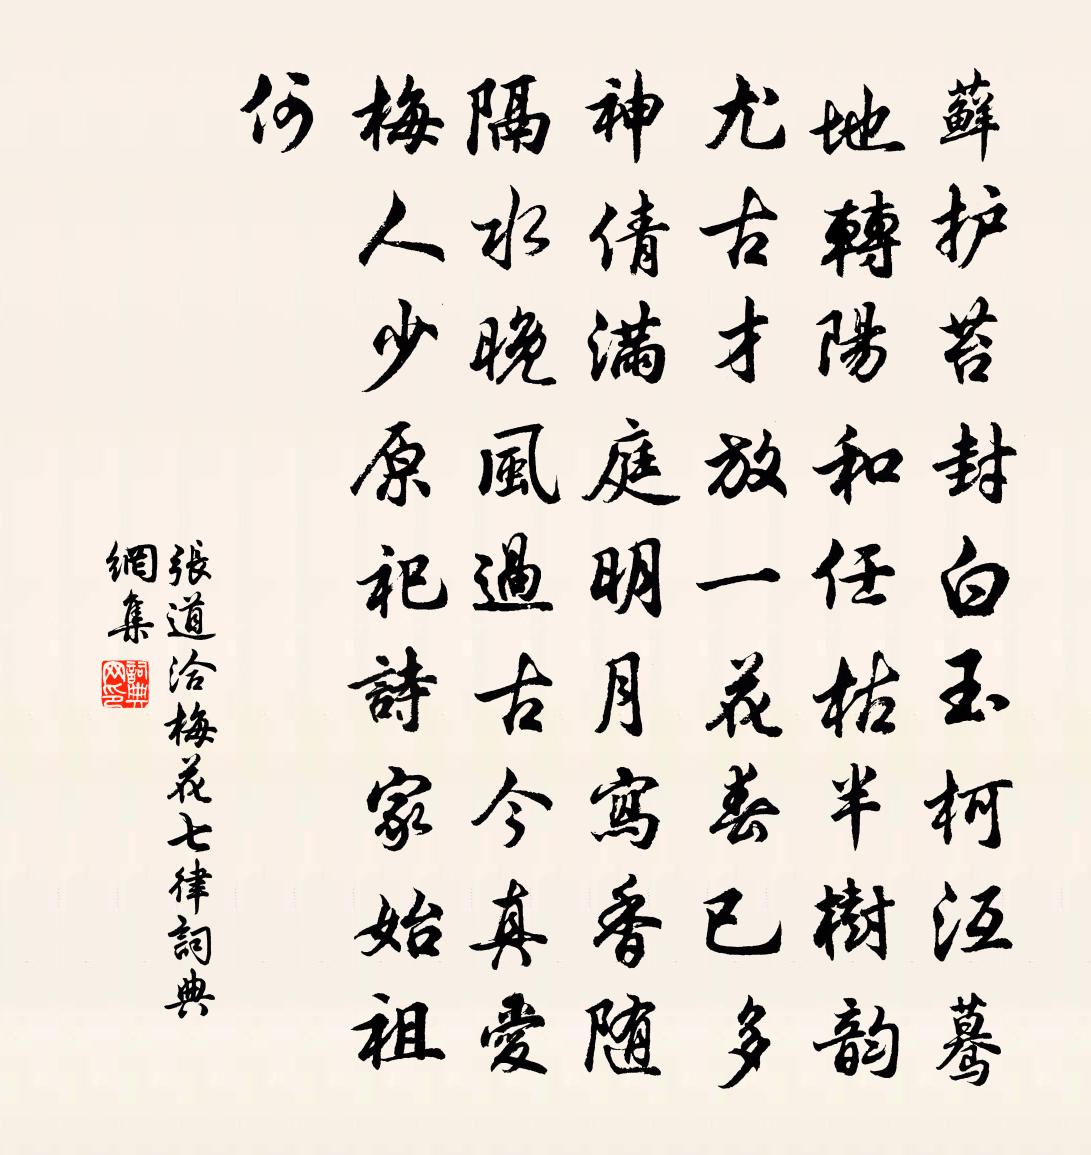 蘚护苔封白玉柯沍驀
地轉陽和任枯半樹韵
尤古才放一花春已多
神倩滿庭明月寫香随
隔水晚風過古今真愛
梅人少原祀詩家始祖
何
張道洽梅花七律詞典
網集
詞典
网印